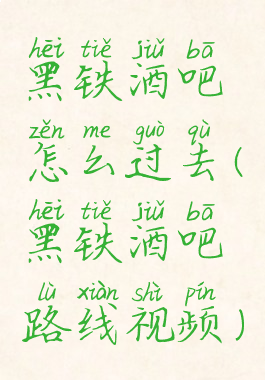 hēi tiě jiǔ bā
黑铁酒吧
zěn me guò qù
怎么过去(
hēi tiě jiǔ bā
黑铁酒吧
lù xiàn shì pín
路线视频)